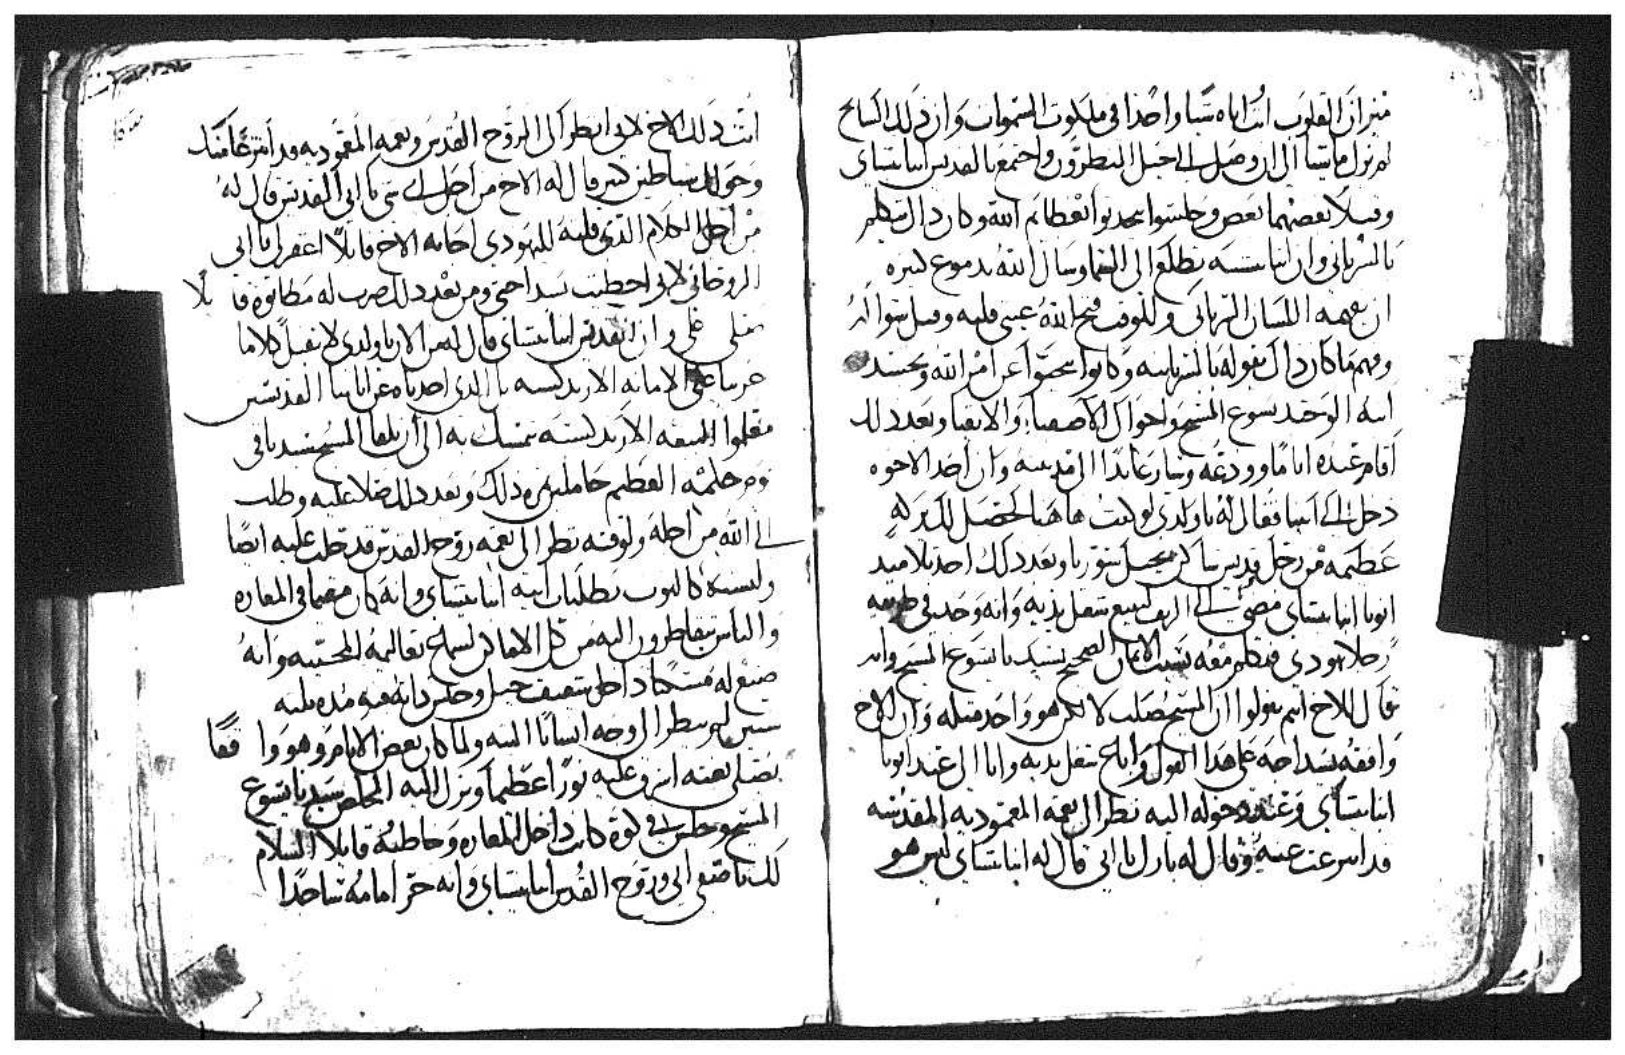 ميزان القلوب انت اباه شيا واحدا في ملكوت السموات وان ذلك السايح
لم يزل ماشيا الى ان وصل الى جبل النطرون واجتمع بالقديس انبا بشاي
وقبلا بعضهما بعض وجلسوا يتحدثوا بعظايم الله وكان ذاك يتكلم
بالسرياني وان انبا بيشيه تطلع الى السما وسال الله بدموع كثيره
ان يفهمه اللسان السرياني وللوقت فتح الله عيني قلبه
وفهم ما كان ذاك يقوله بالسريانيه وكانوا يبحثوا عن امر الله وتجسد
ابنه الوحيد يسوع المسيح واحوال الاصفيا والاتقيا وبعد ذلك
اقام عنده اياما وودعه وسار عايدا الى مدينته وان احد الاخوه
دخل الى انبا فقال له يا ولدي لو كنت هاهنا لحصل لك بركه
عظيمه من رجل قديس ساكن بجبل سوريا وبعد ذلك احد تلاميد
ابونا انبا بشاي مضى الى الريف ليبيع شغل يديه وانه وجد في طريقه
رجلا يهودي فتكلم معه بسبب الايمان الصحيح بسيدنا يسوع المسيح وانه
قال للاخ انتم تقولوا ان المسيح صلب لاكن هو واحد مثله وان الاخ
وافقه بسداجه على هذا القول وباع شغل يديه واتا الى عند ابونا
انبا بشاي وعند دخوله اليه نظر الى نعمه المعموديه المقدسه
قد انتزعت عنه فقال له بارك يا ابي قال له انبا بشاي ليس هو
انت ذلك الاخ لاني انظر الى الروح القدس ونعمه المعموديه قد انتزعا منك
وحولك شياطين كثير قال له الاخ من اجل اي شي يا ابي القديس قال له
من اجل الكلام الذي قلته لليهودي اجابه الاخ قايلا اغفر لي يا ابي
الروحاني لاني اخطيت بسداجتي ومن بعد ذلك ضرب له مطانوه قا يلا
صلي علي وان القديس انبا بشاي قال له من الان يا ولدي لا تقبل كلاما
غريبا عن الامانه الارتدكسيه بل الذي اخدناه عن ابايينا القديسين
معلموا البيعه الارتدكسيه نتمسك به الى ان نلقا المسيح سيدنا في
يوم حكمه العظيم حاملين ثمره ذلك وبعد ذلك صلا عليه وطلب
الى الله من اجله ولوقته نظر الى نعمه روح القدس قد حلت عليه ايضا
وانه كان مقيما في المغاره
والناس يتقاطرون اليه من كل الاماكن لسماع تعاليمه المحييه وانه
صنع له مسكنا داخل شقيف جبل وجلس داخله مده ثلثه
سنين لم ينظر الى وجه انسانا البته ولما كان بعض الايام وهو وا قفا
يصلي بغته اشرق عليه نورا عظيما ونزل اليه المخلص سيدنا يسوع
المسيح وجلس في كوه كانت داخل المغاره وخاطبه قايلا السلام
لك يا صفيي ابي وروح القدس انبا بشاي وانه خر امامه ساجدا